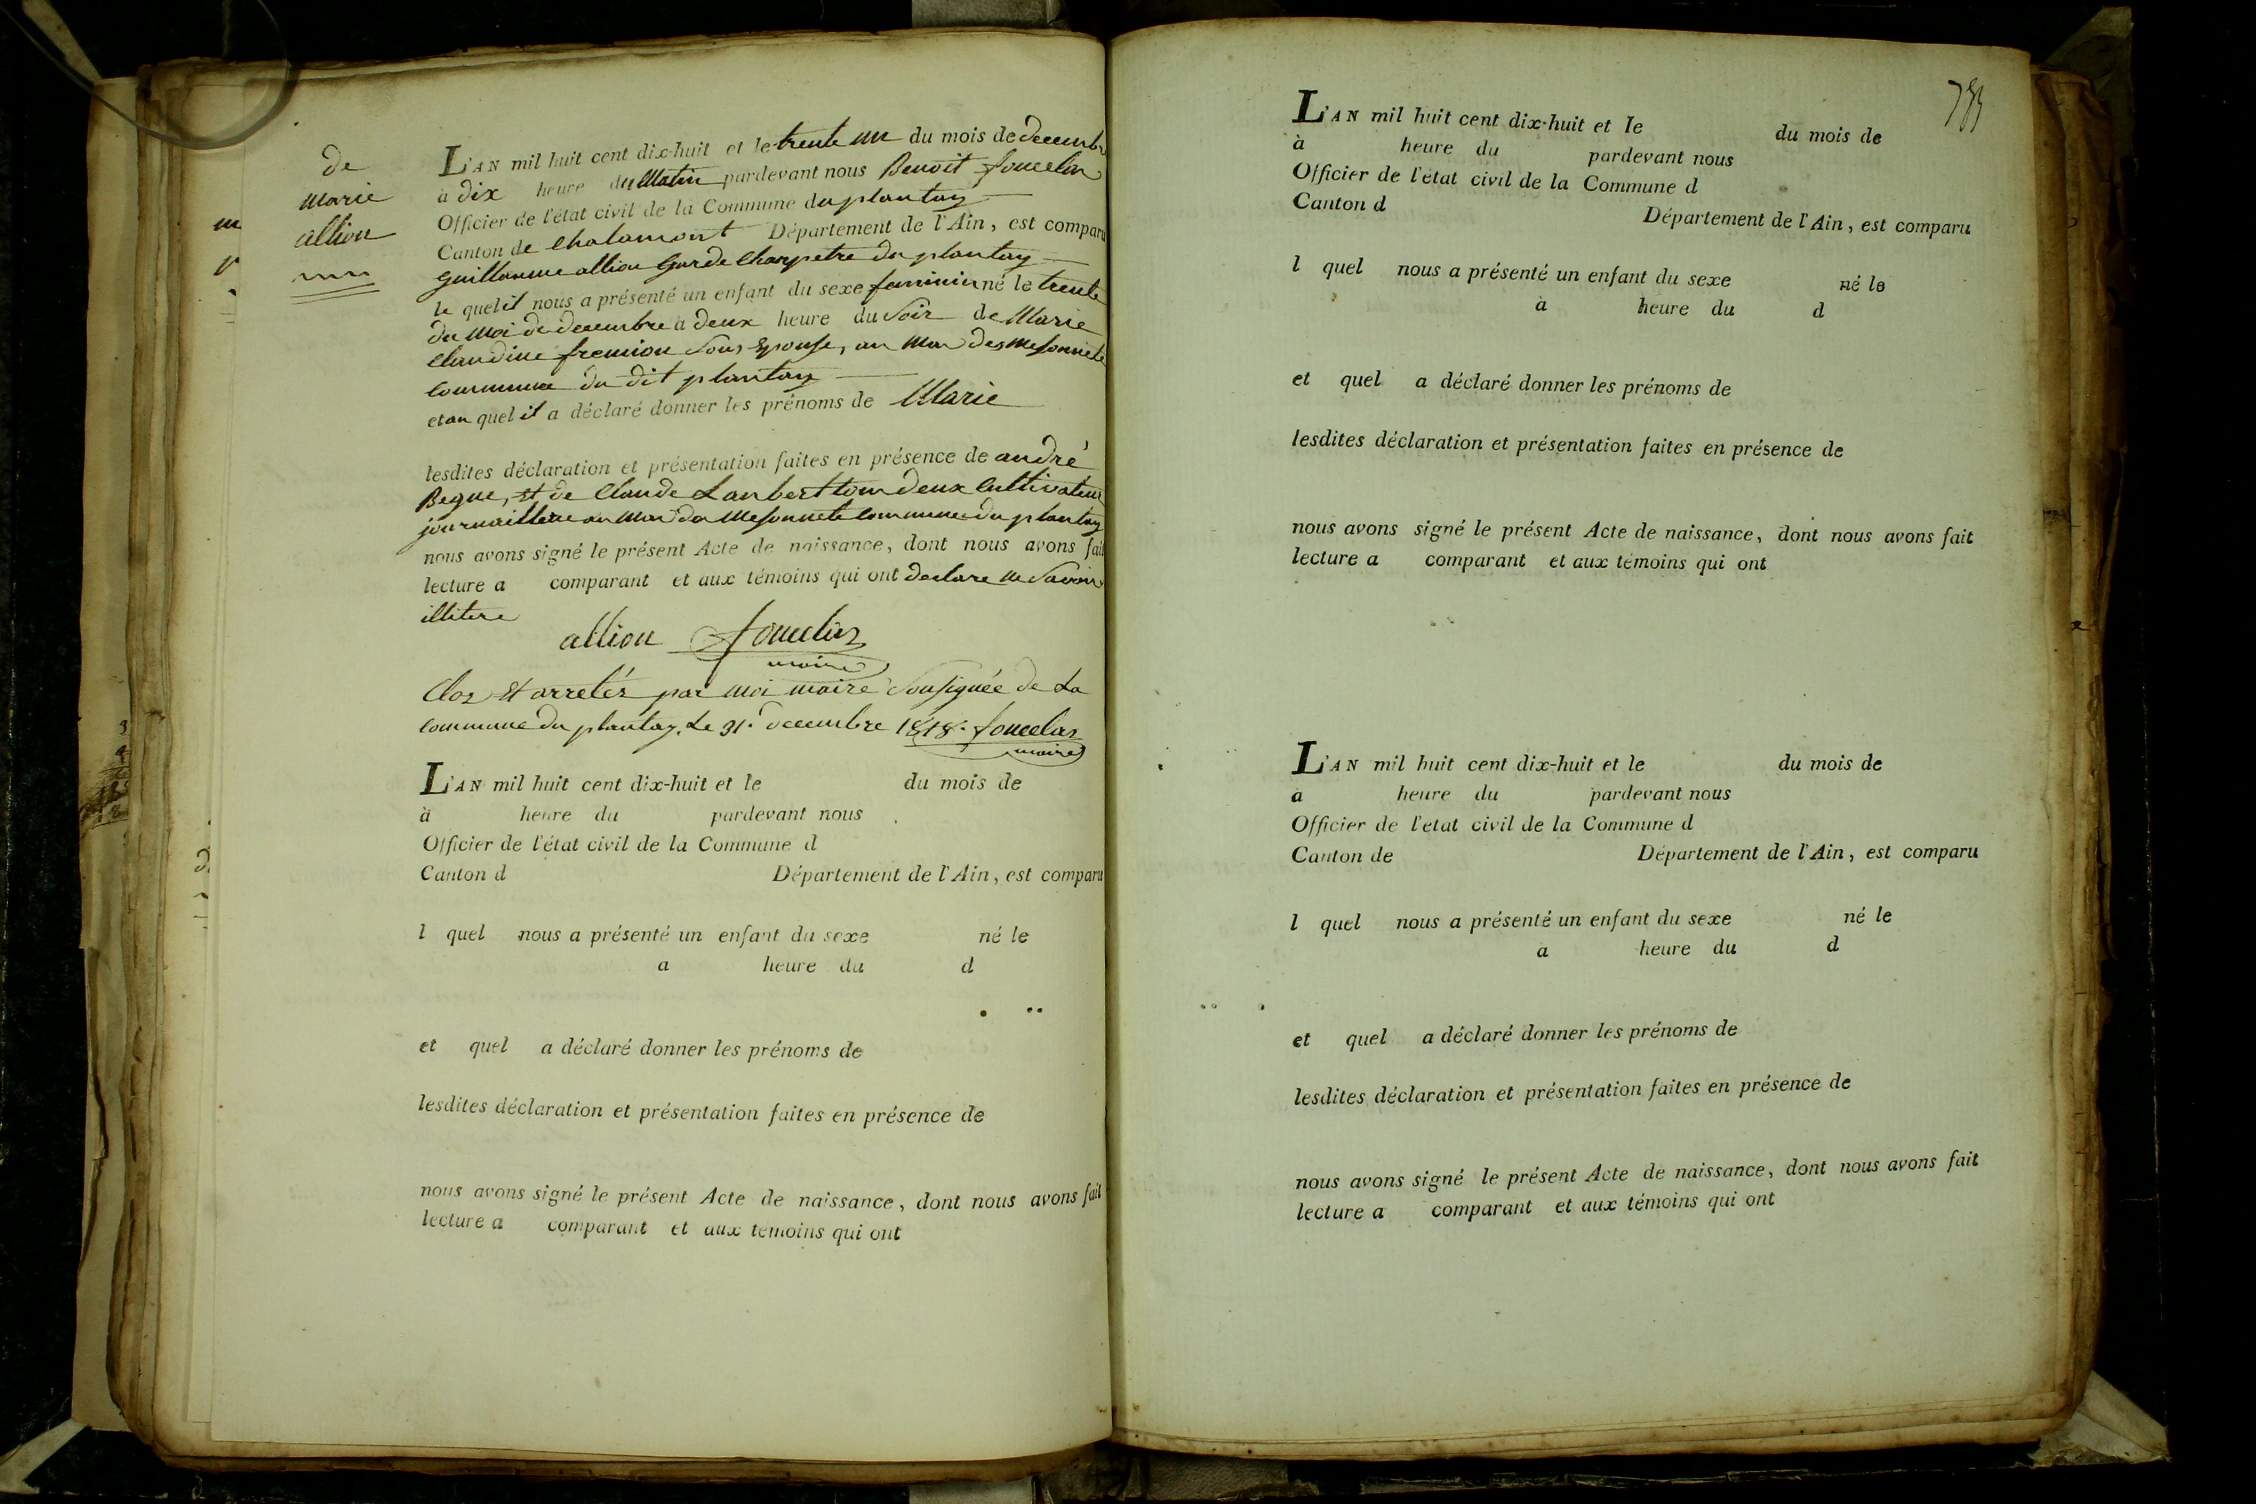 de
marie
allion
L'AN mil huit cent dix-huit et le trente un du mois de decembre
à dix heure du Matin pardevant nous Benoit foucelas
Officier de l'état civil de la Commune du plantay
Canton de Chalamont Département de l'Ain, est comparu
Guillaume allion Garde Champetre du plantay
le quel il nous a présenté un enfant du sexe feminin né le trente
du Moi de decembre à deux heure du Soir de Marie
Claudine fremion Sons Epouse, au Mas des
Commune du dit plantay
et au quel il a déclaré donner les prénoms de Marie
lesdites déclaration et présentation faites en présence de andré
Begue, Et de Claude Lanbert tous deux Cultivateur
au Mas commune du plantay
nous avons signé le présent Acte de naissance, dont nous avons fait
lecture a comparant et aux témoins qui ont declare ne Savoir
illitere
allion foucelas
maire
Clos Et arretés par moi maire Sousignée de La
commune du plantay. Le 31. decembre 1818. foucelas
maire
L'AN mil huit cent dix-huit et le du mois de
à heure du pardevant nous
Officier de l'état civil de la Commune d
Canton d Département de l'Ain, est comparu
l quel nous a présenté un enfant du sexe né le
a heure du d
et quel a déclaré donner les prénoms de
lesdites déclaration et présentation faites en présence de
nous avons signé le présent Acte de naissance, dont nous avons fait
lecture a comparant et aux temoins qui ont
L'AN mil huit cent dix-huit et le du mois de
à heure du pardevant nous
Officier de l'état civil de la Commune d
Canton d Département de l'Ain, est comparu
l quel nous a présenté un enfant du sexe né le
à heure du d
et quel a déclaré donner les prénoms de
lesdites déclaration et présentation faites en présence de
nous avons signé le présent Acte de naissance, dont nous avons fait
lecture a comparant et aux témoins qui ont
L'AN mil huit cent dix-huit et le du mois de
a heure du pardevant nous
Officier de l'etat civil de la Commune d
Canton de Département de l'Ain, est comparu
l quel nous a présenté un enfant du sexe né le
a heure du d
et quel a déclaré donner les prénoms de
lesdites déclaration et présentation faites en présence de
nous avons signé le présent Acte de naissance, dont nous avons fait
lecture a comparant et aux témoins qui ont